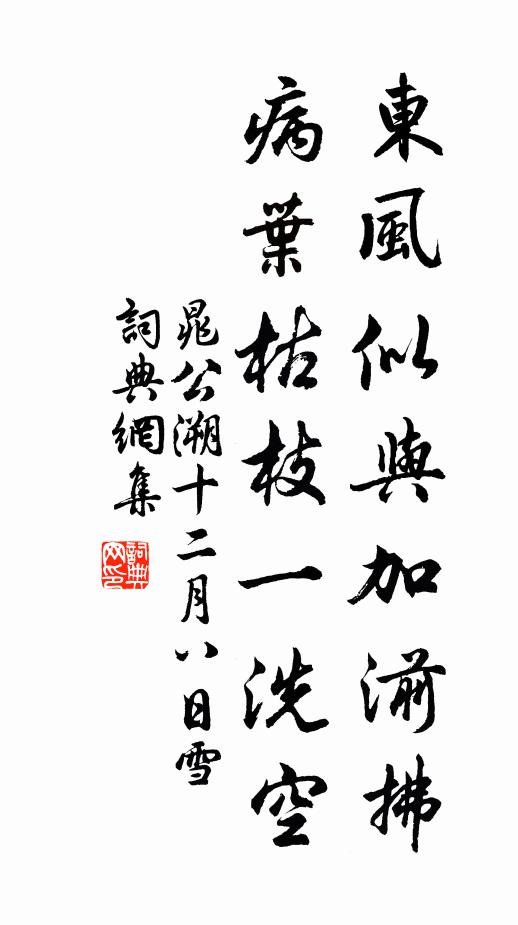 東風似與加湔拂
病葉枯枝一洗空
晁公溯十二月八日雪
詞典網集
詞典网印